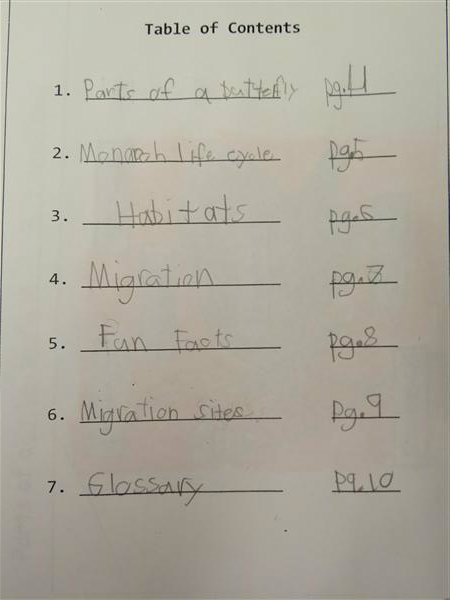 Table of Contents
1. Parts of a butterfly pg.4
2. Monarch life cycle pg.5
3. Habitats pg.6
4. Migration pg.7
5. Fun Facts pg.8
6. Migration sites pg.9
7. Glossary pg.10